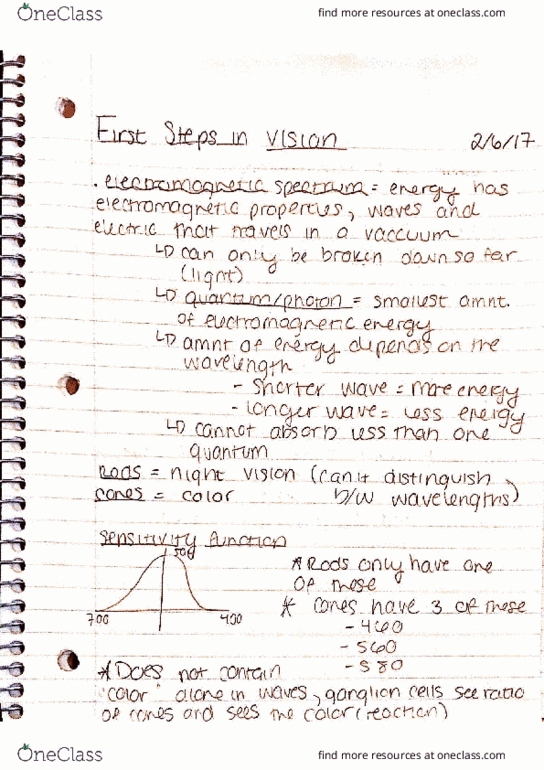 OneClass
find more resources at oneclass.com
First Steps in Vision
2/6/17
. electromagnetic spectrum = energy has
electromagnetic properties, waves and
electric that travels in a vaccuum
↳ can only be broken down so far
(light)
↳ quantum/photon = smallest amnt.
of electromagnetic energy
↳ amnt of energy depends on the
wavelength
- shorter wave = more energy
- longer wave = less energy
↳ cannot absorb less than one
quantum
Rods = night vision (can't distinguish
cones = color b/w wavelengths)
Sensitivity function
* Rods only have one
of these
* cones have 3 of these
700 400
- 460
- 560
* Does not contain
"color" alone in waves, ganglion cells see ratio
of cones and sees the color (reaction)
OneClass
find more resources at oneclass.com